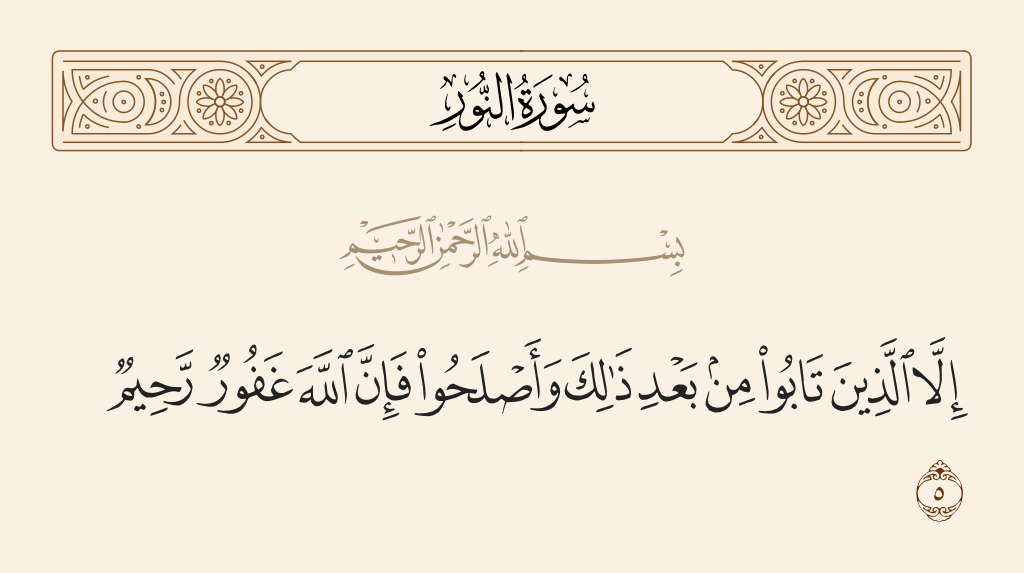 سُورَةُ النُّورِ
بِسْمِ ٱللَّهِ ٱلرَّحْمَٰنِ ٱلرَّحِيمِ
إِلَّا ٱلَّذِينَ تَابُوا۟ مِنۢ بَعْدِ ذَٰلِكَ وَأَصْلَحُوا۟ فَإِنَّ ٱللَّهَ غَفُورٌ رَّحِيمٌ
٥